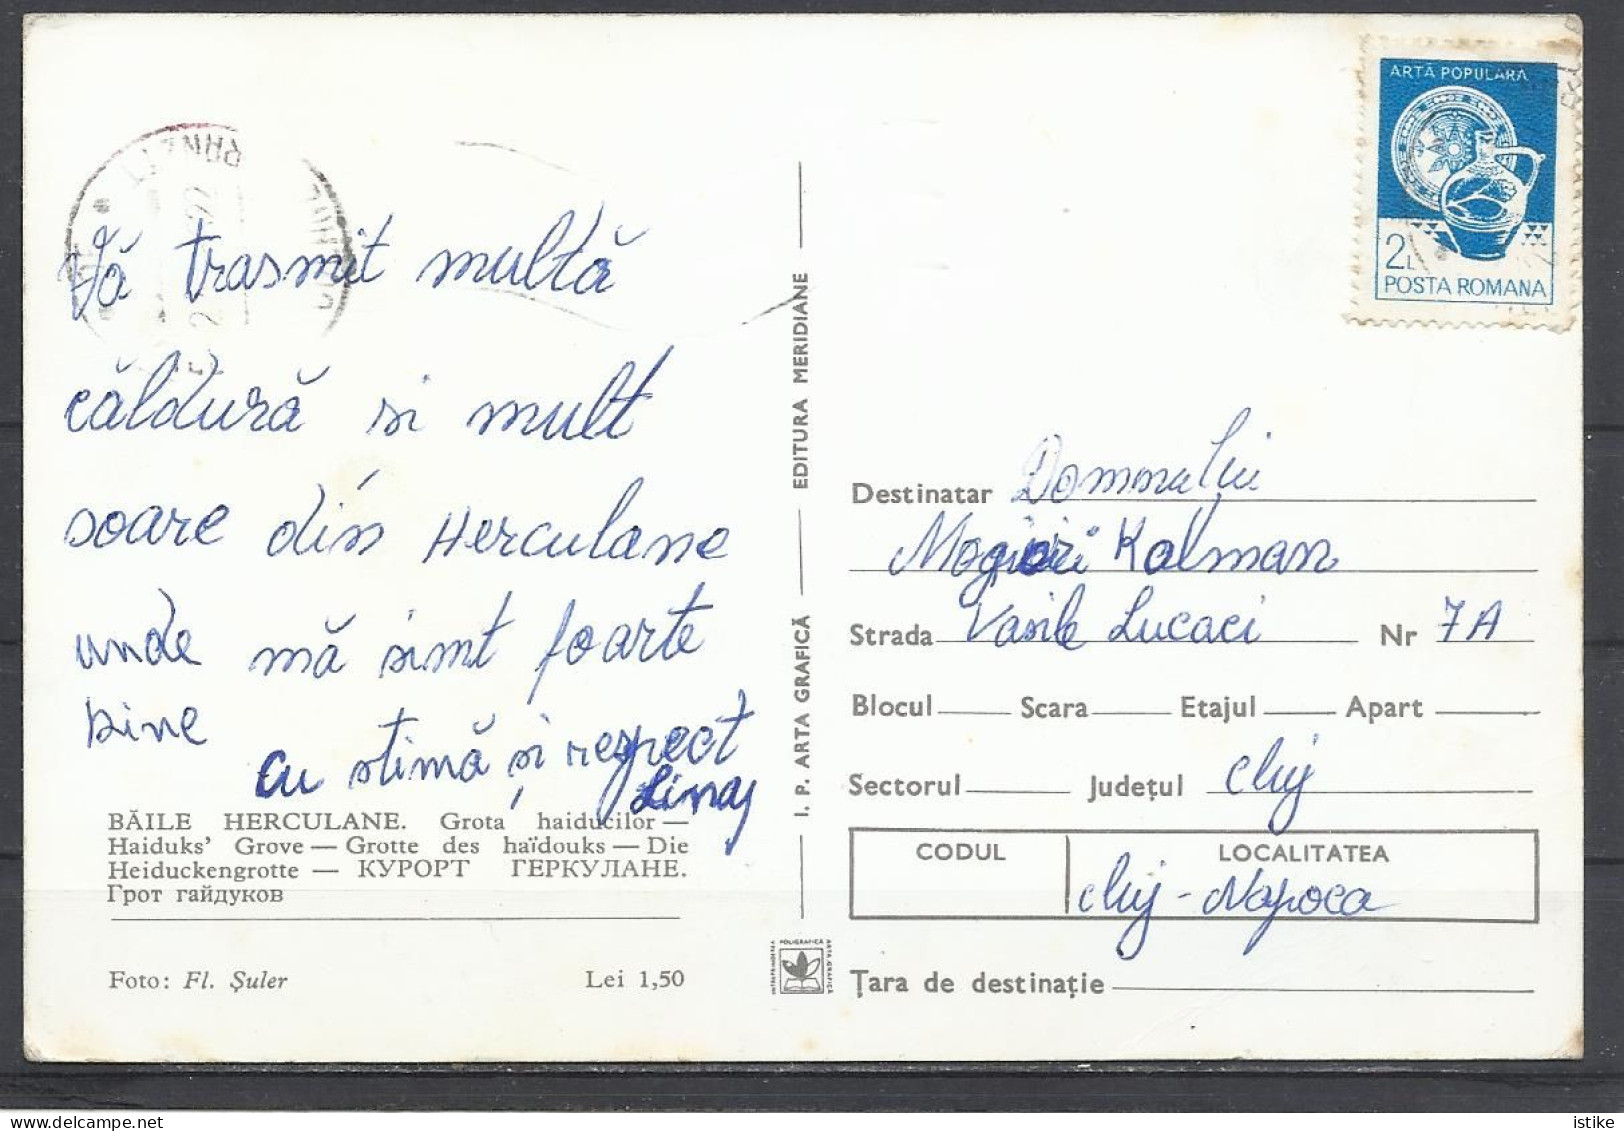 Vă trasmit multă
căldură si mult
soare din Herculane
unde mă simt foarte
bine
cu stimă și respect
BĂILE HERCULANE. Grota haiducilor —
Haiduks' Grove — Grotte des haïdouks — Die
Heiduckengrotte — КУРОРТ ГЕРКУЛАНЕ.
Грот гайдуков
Foto: Fl. Șuler Lei 1,50
I. P. ARTA GRAFICĂ EDITURA MERIDIANE
INTREPRINDEREA POLIGRAFICĂ ARTA GRAFICĂ
ARTĂ POPULARĂ
2L
POSTA ROMANA
Destinatar Domnului
Kalman
Strada Vasile Lucaci Nr 7A
Blocul Scara Etajul Apart
Sectorul Județul Cluj
CODUL LOCALITATEA
Cluj-Napoca
Țara de destinație
istike